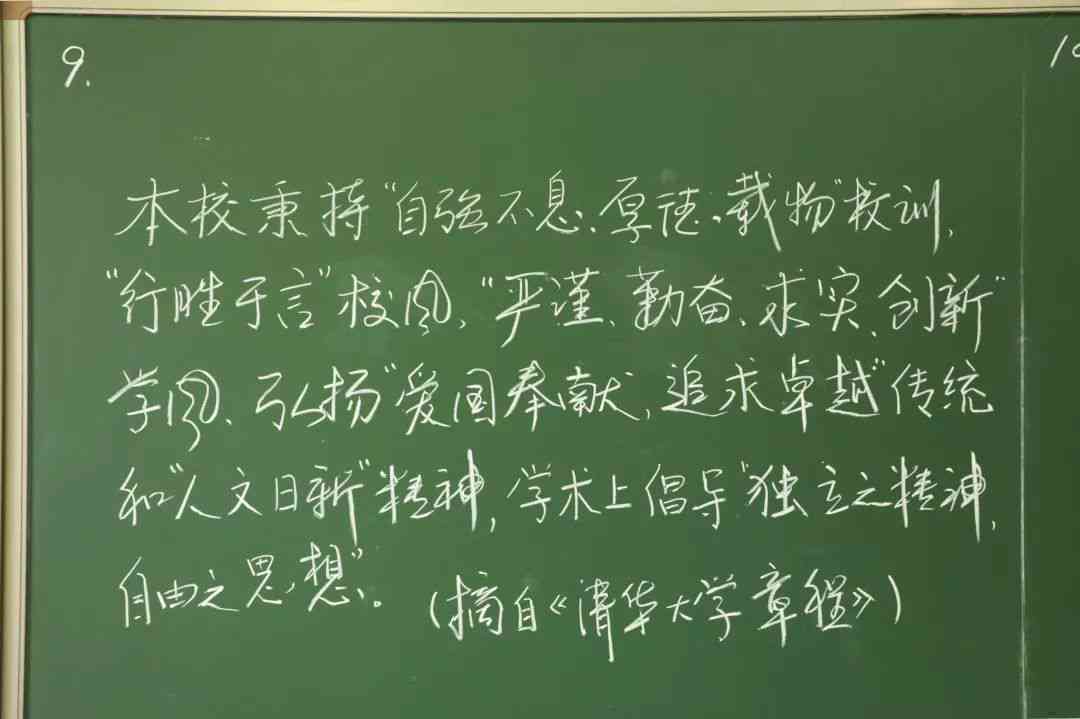 9.
10
本校秉持“自强不息、厚德、载物”校训,
“行胜于言”校风、“严谨、勤奋、求实、创新”
学风、弘扬“爱国奉献,追求卓越”传统
和“人文日新”精神,学术上倡导“独立之精神,
自由之思想”。(摘自《清华大学章程》)